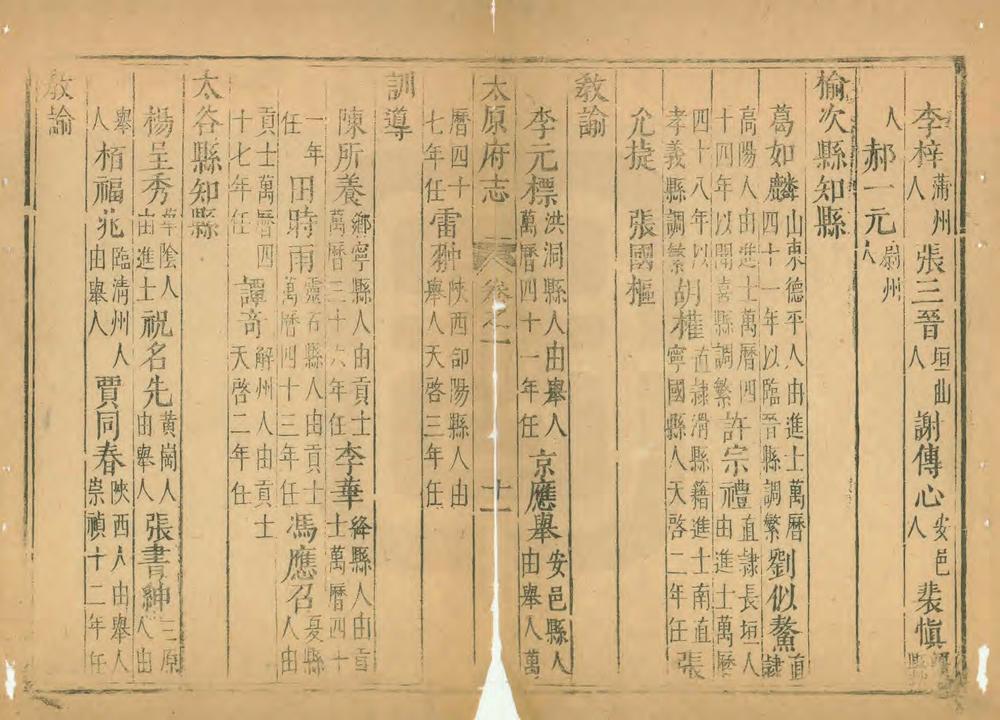 李梓蒲州人 張三晉垣曲人 謝傳心安邑人 裴愼縣
郝一元蔚州人
榆次縣知縣
葛如麟山東德平人由進士萬曆四十一年以臨晉縣調繁 劉似鰲直隸
高陽人由進士萬曆四十四年以聞喜縣調繁 許宗禮直隸長垣人由進士萬曆
四十八年以孝義縣調繁 胡權直隸滑縣籍進士南直寧國縣人天啓二年任 張
允捷 張國樞
教諭
李元標洪洞縣人由舉人萬曆四十一年任 京應舉安邑縣人由舉人萬
太原府志 卷之一 十一
曆四十七年任 雷翀陝西郃陽縣人由舉人天啓三年任
訓導
陳所養鄉寧縣人由貢士萬曆三十六年任 李華絳縣人由貢士萬曆四十
一年任 田時雨靈石縣人由貢士萬曆四十三年任 馮應召夏縣人由
貢士萬曆四十七年任 譚奇解州人由貢士天啓二年任
太谷縣知縣
楊呈秀華陰人由進士 祝名先黃崗人由舉人 張書紳三原人由
舉人 栢福兆臨清州人由舉人 賈同春陝西人由舉人崇禎十二年任
教諭